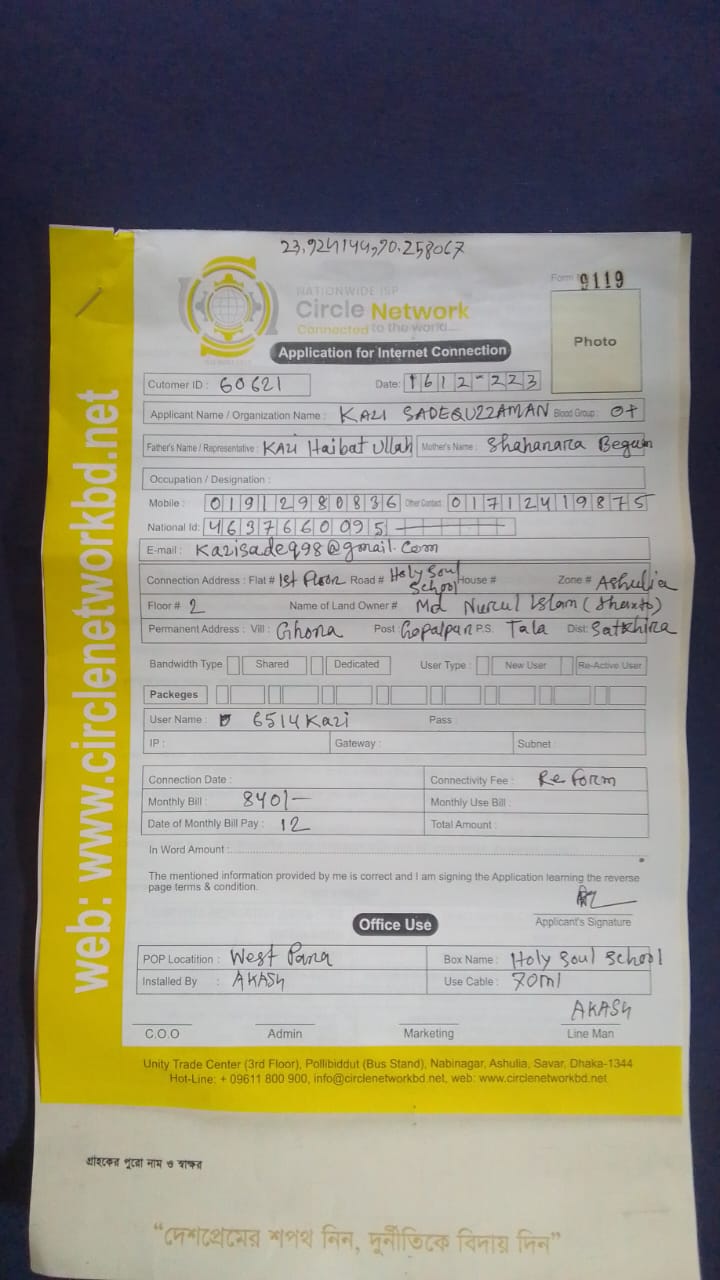 23.924144,90.258067
Form 9119
NATIONWIDE ISP
Circle Network
Connected to the world....
Photo
Application for Internet Connection
Cutomer ID : 60621 Date: 1612-223
Applicant Name / Organization Name : KAZI SADEQUZZAMAN Blood Group : O+
Father's Name / Representative : KAZI Haibat Ullah Mother's Name : Shahanara Begum
Occupation / Designation :
Mobile : 01912980836 Other Contact 01712419875
National Id: 4637660095
E-mail : Kazisadeq98@gmail.com
Connection Address : Flat # 1st Floor Road # Holy Soul School House # Zone # Ashulia
Floor # 2 Name of Land Owner # Md Nurul Islam (Shanto)
Permanent Address : Vill : Ghona Post Gopalpur P.S. Tala Dist: Satkhira
Bandwidth Type Shared Dedicated User Type : New User Re-Active User
Packeges
User Name : 6514Kazi Pass :
IP : Gateway : Subnet :
Connection Date : Connectivity Fee : Re form
Monthly Bill : 840/- Monthly Use Bill :
Date of Monthly Bill Pay : 12 Total Amount :
In Word Amount :
The mentioned information provided by me is correct and I am signing the Application learning the reverse
page terms & condition.
Applicant's Signature
Office Use
POP Locatition : West Para Box Name : Holy Soul School
Installed By : AKASH Use Cable : 70ml
AKASH
C.O.O Admin Marketing Line Man
Unity Trade Center (3rd Floor), Pollibiddut (Bus Stand), Nabinagar, Ashulia, Savar, Dhaka-1344
Hot-Line: + 09611 800 900, info@circlenetworkbd.net, web: www.circlenetworkbd.net
web: www.circlenetworkbd.net
গ্রাহকের পুরো নাম ও স্বাক্ষর
“দেশপ্রেমের শপথ নিন, দুর্নীতিকে বিদায় দিন”